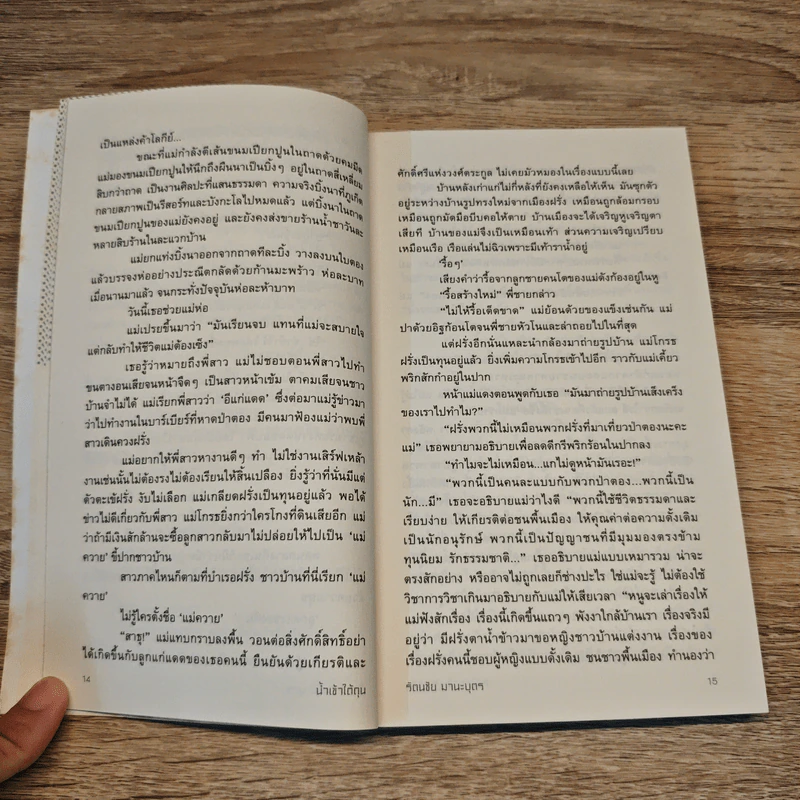 เป็นแหล่งค้าโลกีย์...
ขณะที่แม่กำลังตีเส้นขนมเปียกปูนในถาดด้วยคมมีด
แม่มองขนมเปียกปูนให้นึกถึงผืนนาเป็นบิ้งๆ อยู่ในถาดสี่เหลี่ยม
สิบกว่าถาด เป็นงานศิลปะที่แสนธรรมดา ความจริงบิ้งนาที่ภูเก็ต
กลายสภาพเป็นรีสอร์ทและบังกะโลไปหมดแล้ว แต่บิ้งนาในถาด
ขนมเปียกปูนของแม่ยังคงอยู่ และยังคงส่งขายร้านน้ำชาวันละ
หลายสิบร้านในละแวกบ้าน
แม่ยกแท่งบิ้งนาออกจากถาดทีละบิ้ง วางลงบนใบตอง
แล้วบรรจงห่ออย่างประณีตกลัดด้วยก้านมะพร้าว ห่อละบาท
เมื่อนานมาแล้ว จนกระทั่งปัจจุบันห่อละห้าบาท
วันนี้เธอช่วยแม่ห่อ
แม่เปรยขึ้นมาว่า “มันเรียนจบ แทนที่แม่จะสบายใจ
แต่กลับทำให้ชีวิตแม่ต้องเซ็ง”
เธอรู้ว่าหมายถึงพี่สาว แม่ไม่ชอบตอนพี่สาวไปทำ
ขนตางอนเสียจนหน้าจืดๆ เป็นสาวหน้าเข้ม ตาคมเสียจนชาว
บ้านจำไม่ได้ แม่เรียกพี่สาวว่า ‘อีแก่แดด’ ซึ่งต่อมาแม่รู้ข่าวมา
ว่าไปทำงานในบาร์เบียร์ที่หาดป่าตอง มีคนมาฟ้องแม่ว่าพบพี่
สาวเดินควงฝรั่ง
แม่อยากให้พี่สาวหางานดีๆ ทำ ไม่ใช่งานเสิร์ฟเหล้า
งานเช่นนั้นไม่ต้องรงไม่ต้องเรียนให้สิ้นเปลือง ยิ่งรู้ว่าที่นั่นมีแต่
ตัวตะเข้ฝรั่ง งับไม่เลือก แม่เกลียดฝรั่งเป็นทุนอยู่แล้ว พอได้
ข่าวไม่ดีเกี่ยวกับพี่สาว แม่โกรธยิ่งกว่าใครโกงที่ดินเสียอีก แม่
ว่าถ้ามีเงินสักล้านจะซื้อลูกสาวกลับมาไม่ปล่อยให้ไปเป็น ‘แม่
ควาย’ ขี้ปากชาวบ้าน
สาวภาคไหนก็ตามที่บำเรอฝรั่ง ชาวบ้านที่นี่เรียก ‘แม่
ควาย’
ไม่รู้ใครตั้งชื่อ ‘แม่ควาย’
“สาธุ!” แม่แทบกราบลงพื้น วอนต่อสิ่งศักดิ์สิทธิ์อย่า
ได้เกิดขึ้นกับลูกแก่แดดของเธอคนนี้ ยืนยันด้วยเกียรติและ
14
น้ำเช้าใต้ถุน
ศักดิ์ศรีแห่งวงศ์ตระกูล ไม่เคยมัวหมองในเรื่องแบบนี้เลย
บ้านหลังเก่าแก่ไม่กี่หลังที่ยังคงเหลือให้เห็น มันซุกตัว
อยู่ระหว่างบ้านรูปทรงใหม่จากเมืองฝรั่ง เหมือนถูกล้อมกรอบ
เหมือนถูกมัดมือบีบคอให้ตาย บ้านเมืองจะได้เจริญหูเจริญตา
เสียที บ้านของแม่จึงเป็นเหมือนเท้า ส่วนความเจริญเปรียบ
เหมือนเรือ เรือแล่นไม่ฉิวเพราะมีเท้าราน้ำอยู่
‘รื้อๆ’
เสียงคำว่ารื้อจากลูกชายคนโตของแม่ดังก้องอยู่ในหู
“รื้อสร้างใหม่” พี่ชายกล่าว
“ไม่ให้รื้อเด็ดขาด” แม่ย้อนด้วยของแข็งเช่นกัน แม่
ปาด้วยอิฐก้อนโตจนพี่ชายหัวโนและล่าถอยไปในที่สุด
แต่ฝรั่งอีกนั่นแหละนำกล้องมาถ่ายรูปบ้าน แม่โกรธ
ฝรั่งเป็นทุนอยู่แล้ว ยิ่งเพิ่มความโกรธเข้าไปอีก ราวกับแม่เคี้ยว
พริกสักกำอยู่ในปาก
หน้าแม่แดงตอนพูดกับเธอ “มันมาถ่ายรูปบ้านเส็งเคร็ง
ของเราไปทำไม?”
“ฝรั่งพวกนี้ไม่เหมือนพวกฝรั่งที่มาเที่ยวป่าตองนะคะ
แม่” เธอพยายามอธิบายเพื่อลดดีกรีพริกร้อนในปากลง
“ทำไมจะไม่เหมือน...แกไม่ดูหน้ามันเรอะ!”
“พวกนี้เป็นคนละแบบกับพวกป่าตอง...พวกนี้เป็น
นัก...มี” เธอจะอธิบายแม่ว่าไงดี “พวกนี้ใช้ชีวิตธรรมดาและ
เรียบง่าย ให้เกียรติต่อชนพื้นเมือง ให้คุณค่าต่อความดั้งเดิม
เป็นนักอนุรักษ์ พวกนี้เป็นปัญญาชนที่มีมุมมองตรงข้าม
ทุนนิยม รักธรรมชาติ...” เธออธิบายแม่แบบเหมารวม น่าจะ
ตรงสักอย่าง หรืออาจไม่ถูกเลยก็ช่างปะไร ใช่แม่จะรู้ ไม่ต้องใช้
วิชาการวิชาเกินมาอธิบายกับแม่ให้เสียเวลา “หนูจะเล่าเรื่องให้
แม่ฟังสักเรื่อง เรื่องนี้เกิดขึ้นแถวๆ พังงาใกล้บ้านเรา เรื่องจริงมี
อยู่ว่า มีฝรั่งตาน้ำข้าวมาขอหญิงชาวบ้านแต่งงาน เรื่องของ
เรื่องฝรั่งคนนี้ชอบผู้หญิงแบบดั้งเดิม ชนชาวพื้นเมือง ทำนองว่า
รัตนชัย มานะบุตร
15